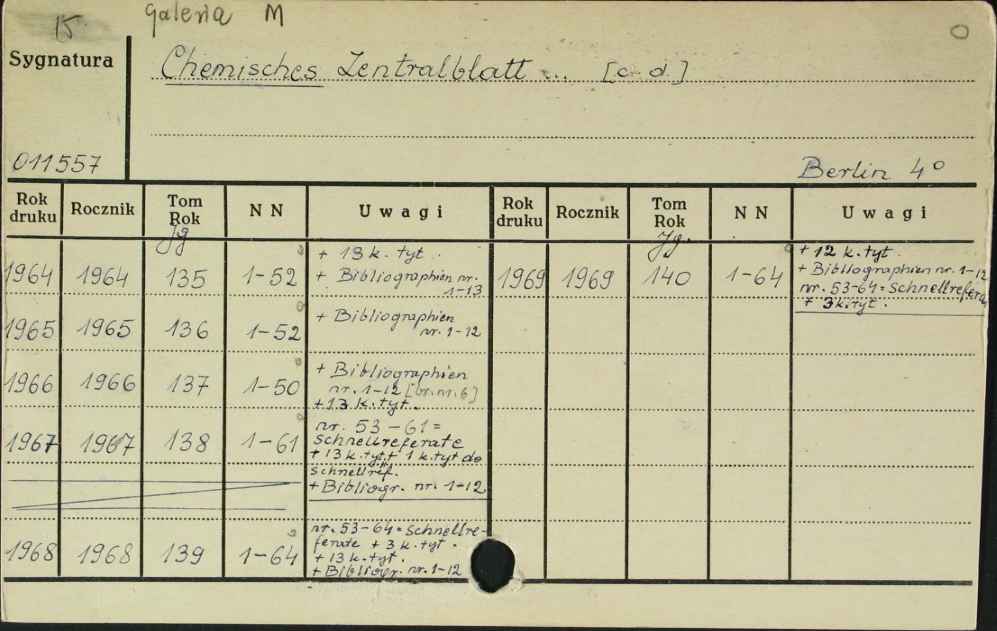 15 Galeria M
Sygnatura
Chemisches Zentralblatt ... [c. d.]
011557
Berlin 4°
Rok druku Rocznik Tom Rok Jg N N Uwagi Rok druku Rocznik Tom Rok Jg. N N Uwagi
1964 1964 135 1-52 + 13 k. tyt.
+ Bibliographien nr.
1-13
1965 1965 136 1-52 + Bibliographien
nr. 1-12
1966 1966 137 1-50 + Bibliographien
nr. 1-12 [br. nr. 6]
+ 13 k. tyt.
1967 1967 138 1-61 nr. 53-61 =
Schnellreferate
+ 13 k. tyt. + 1 k. tyt do
schnellref.
+ Bibliogr. nr. 1-12
1968 1968 139 1-64 nr. 53-64 = Schnellre-
ferate + 3 k. tyt.
+ 13 k. tyt.
+ Bibliogr. nr. 1-12
1969 1969 140 1-64 + 12 k. tyt
+ Bibliographien nr. 1-12
nr. 53-64 = Schnellrefera
+ 3 k. tyt.